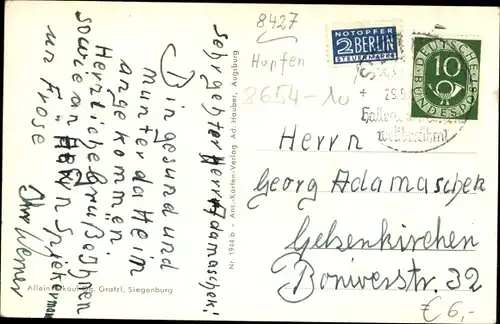 8427
Hopfen
8654-10
NOTOPFER
2 BERLIN
STEUERMARKE
DEUTSCHE
BUNDESPOST
10
Herrn
Georg Adamaschek
Gelsenkirchen
Boniverstr. 32
€ 6,-
Sehr geehrter Herr Adamaschek!
Bin gesund und
munter daheim
angekommen
Herzliche Grüße Ihnen
sowie an Herrn Spiekermann
u. Frose
Ihr Werner
Nr. 1944 b • Ans.-Karten-Verlag Ad. Hauber, Augsburg
Gratzl, Siegenburg